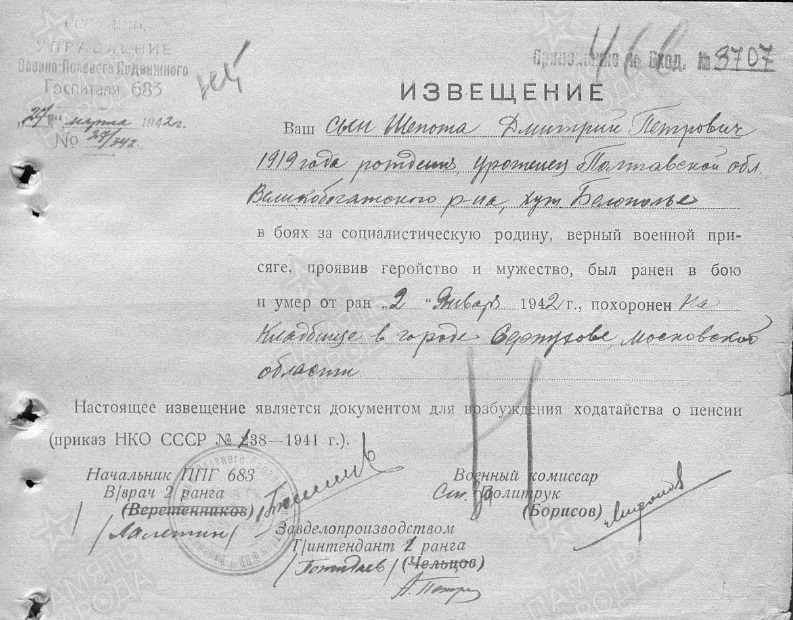 УПРАВЛЕНИЕ
Военно-Полевого Подвижного
Госпиталя 683
"27" марта 1942г.
№ 27/342
Приложение to Вход. № 3707
466
ИЗВЕЩЕНИЕ
Ваш сын Шепота Дмитрий Петрович
1919 года рождения, уроженец Полтавской обл.
Великобогатского р-на, хут
в боях за социалистическую родину, верный военной при-
сяге, проявив геройство и мужество, был ранен в бою
и умер от ран „2" Января 1942 г., похоронен на
Кладбище в городе Серпухове, Московской
области
Настоящее извещение является документом для возбуждения ходатайства о пенсии
(приказ НКО СССР № 138—1941 г.).
Начальник ППГ 683
В/врач 2 ранга
(Веретенников)
Военный комиссар
Ст. Политрук
(Борисов)
Завделопроизводством
Т/интендант 2 ранга
(Чельцов)
ПАМЯТЬ
НАРОДА